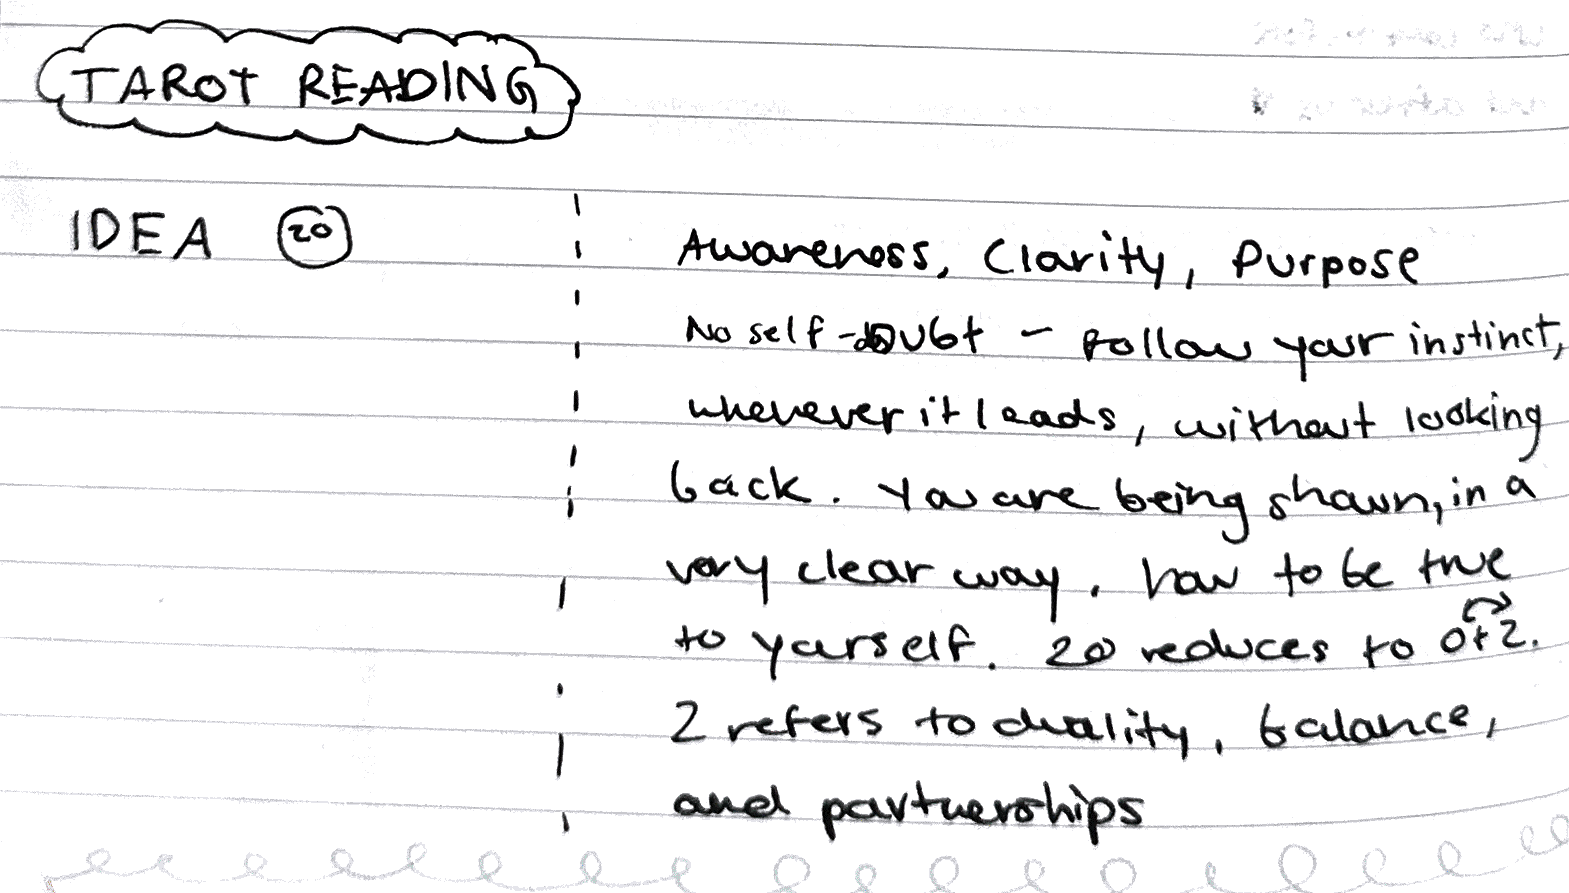 TAROT READING
IDEA 20
Awareness, Clarity, Purpose
No self-doubt - follow your instinct,
whenever it leads, without looking
back. You are being shown, in a
very clear way, how to be true
to yourself. 20 reduces to 0+2.
2 refers to duality, balance,
and partnerships